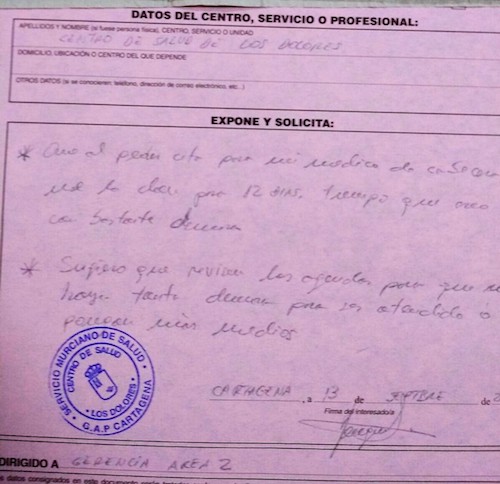 DATOS DEL CENTRO, SERVICIO O PROFESIONAL:
APELLIDOS Y NOMBRE (si fuese persona física), CENTRO, SERVICIO O UNIDAD
CENTRO DE SALUD DE LOS DOLORES
DOMICILIO, UBICACIÓN O CENTRO DEL QUE DEPENDE
OTROS DATOS (si se conocieran: teléfono, dirección de correo electrónico, etc..)
EXPONE Y SOLICITA:
* Que al pedir cita para mi médico de cabecera
me la dan para 12 DIAS, tiempo que creo
con bastante demora
* Sugiero que revisen las agendas para que no
haya tanta demora para ser atendido o
pongan más medios
SERVICIO MURCIANO DE SALUD
CENTRO DE SALUD
LOS DOLORES
G.A.P CARTAGENA
CARTAGENA, a 13 de de 2
Firma del interesado/a
DIRIGIDO A GERENCIA AREA 2
s datos consignados en este documento serán